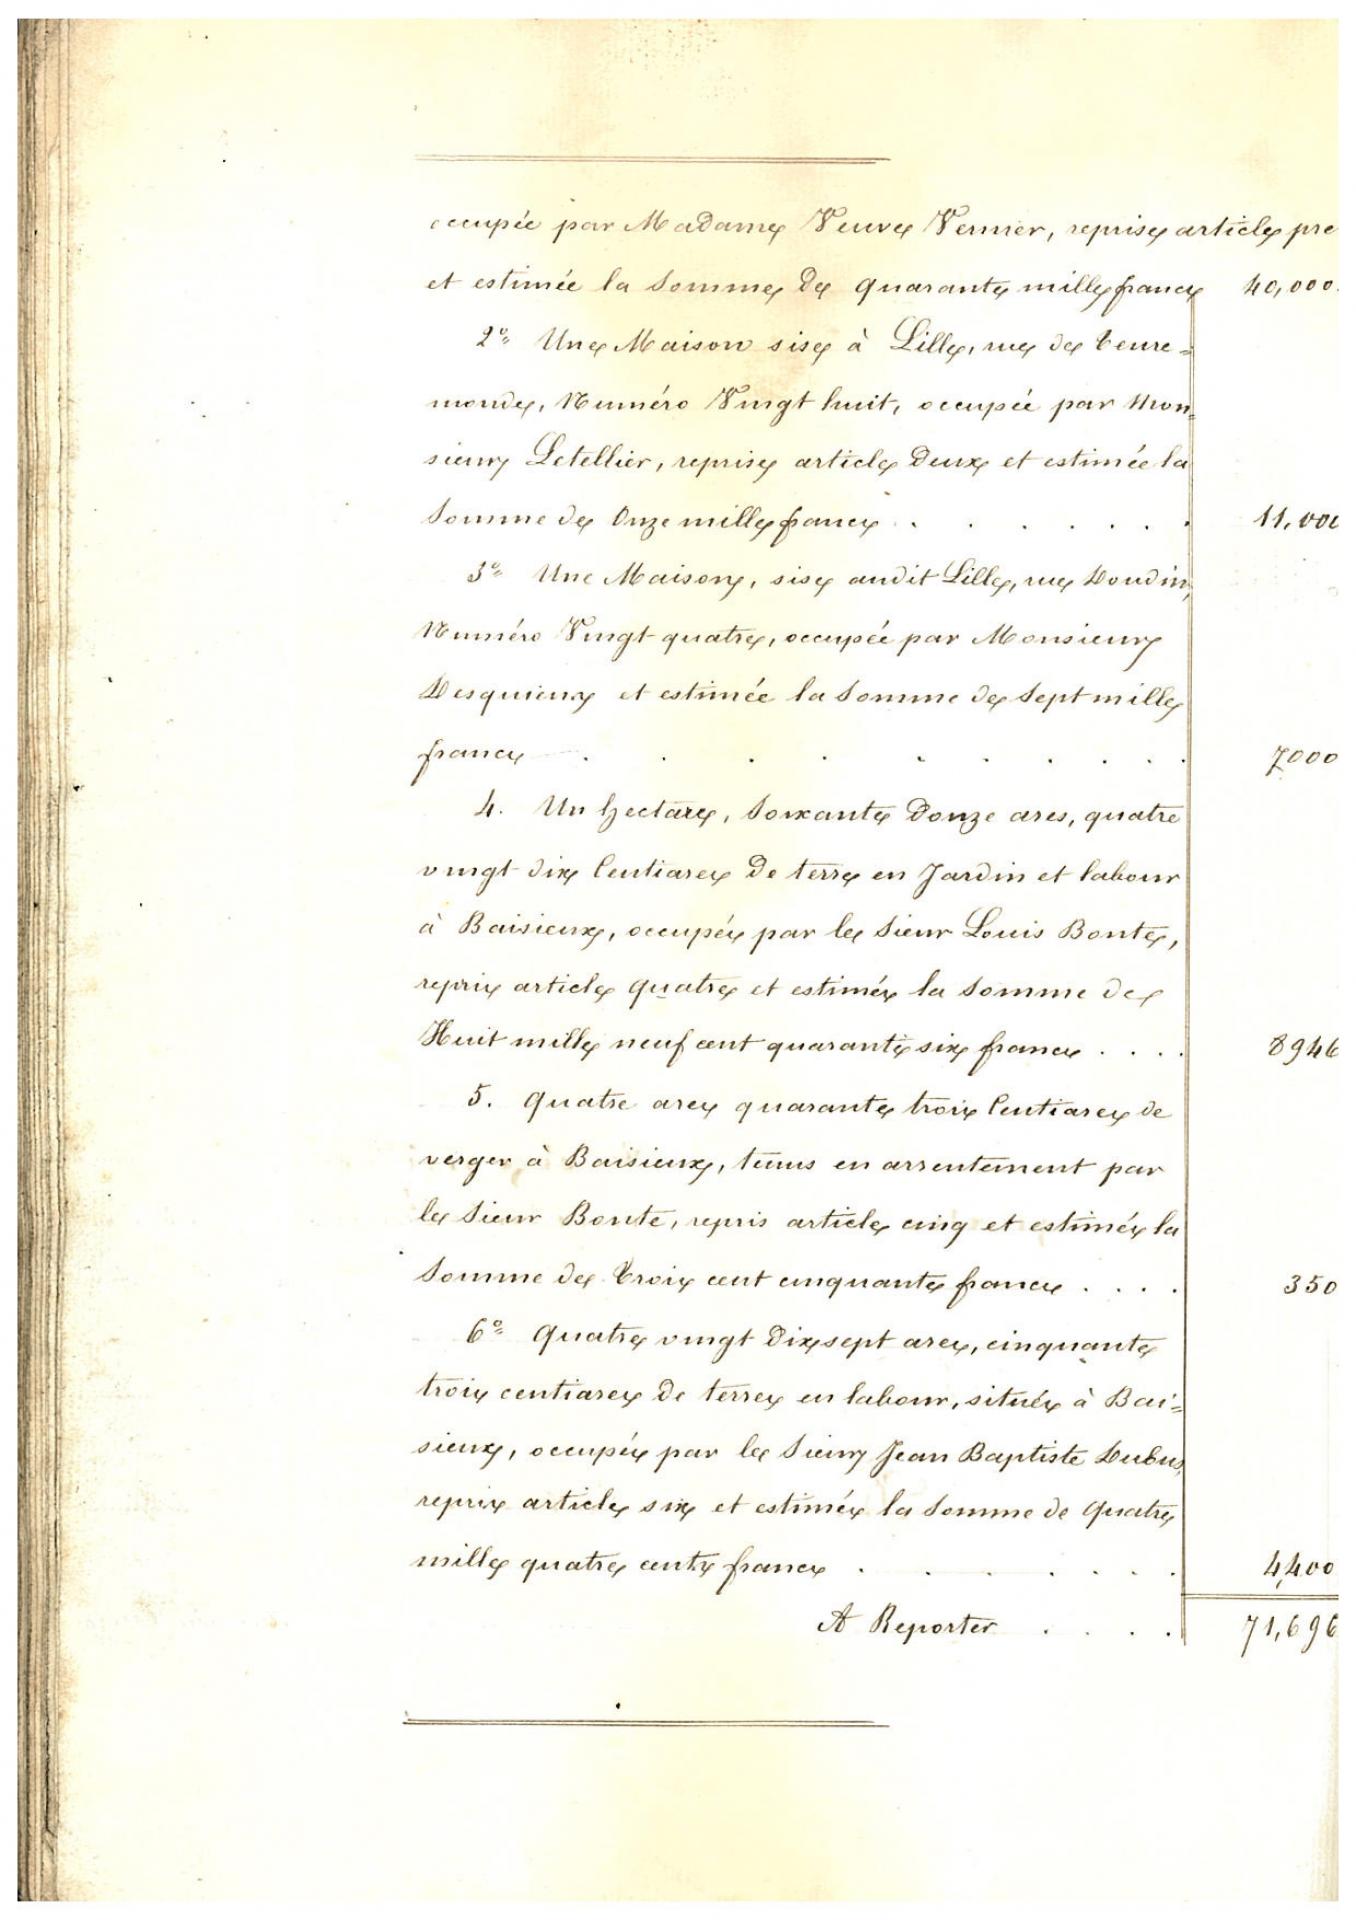 occupée par Madame Veuve Vernier, reprise article pre
et estimée la somme de quarante mille francs 40,000.
2° Une Maison sise à Lille, rue de Tenre=
monde, Numéro Vingt huit, occupée par Mon=
sieur Letellier, reprise article Deux et estimée la
somme de Onze mille francs . . . . . . 11,000
3° Une Maison, sise audit Lille, rue Doudin,
Numéro Vingt quatre, occupée par Monsieur
Desquieux et estimée la somme de Sept mille
francs . . . . . . . . . 7000
4. Un hectare, Soixante Douze ares, quatre
vingt dix Centiares De terre en Jardin et labour
à Baisieux, occupés par le Sieur Louis Bonte,
repris article quatre et estimés la somme de
Huit mille neuf cent quarante six francs . . . . 8946
5. Quatre ares quarante trois Centiares de
verger à Baisieux, tenus en arrentement par
le Sieur Bonte, repris article cinq et estimés la
Somme de Trois cent cinquante francs . . . . 350
6° Quatre vingt Dix sept ares, cinquante
trois centiares De terres en labour, situés à Bai=
sieux, occupés par le Sieur Jean Baptiste Dubus,
repris article six et estimés la somme de Quatre
mille quatre cents francs . . . . . . 4,400
A Reporter . . . . 71,696